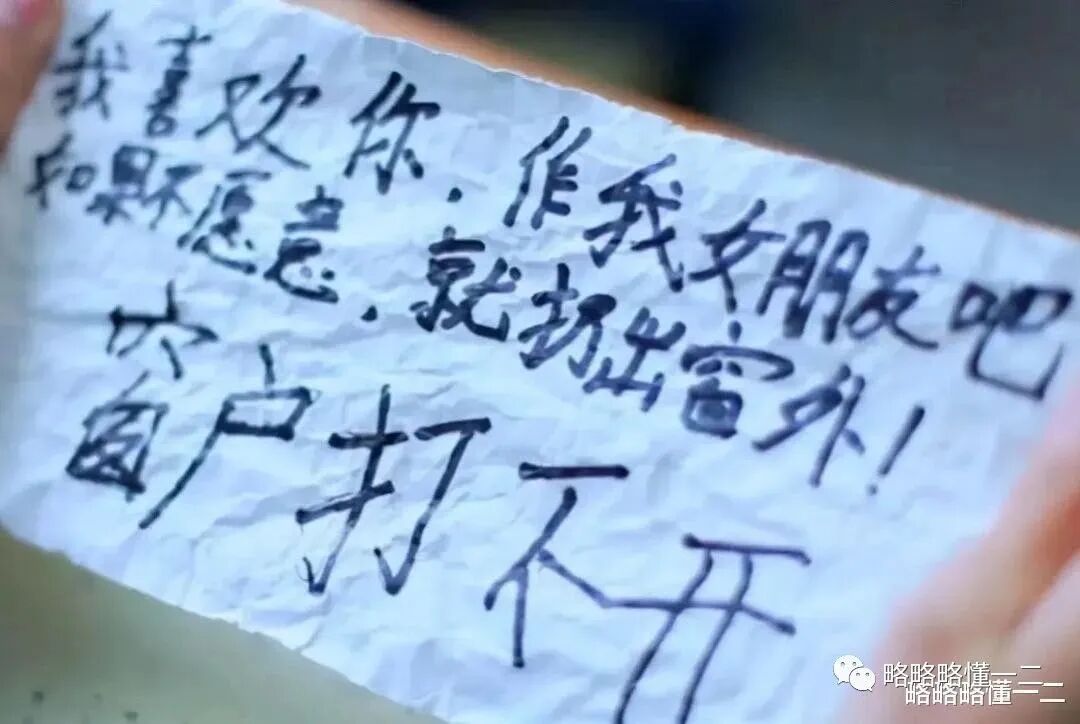 我喜欢你，作我女朋友吧
如果不愿意，就扔出窗外！
窗户打不开
略略略懂一二
略略略懂一二